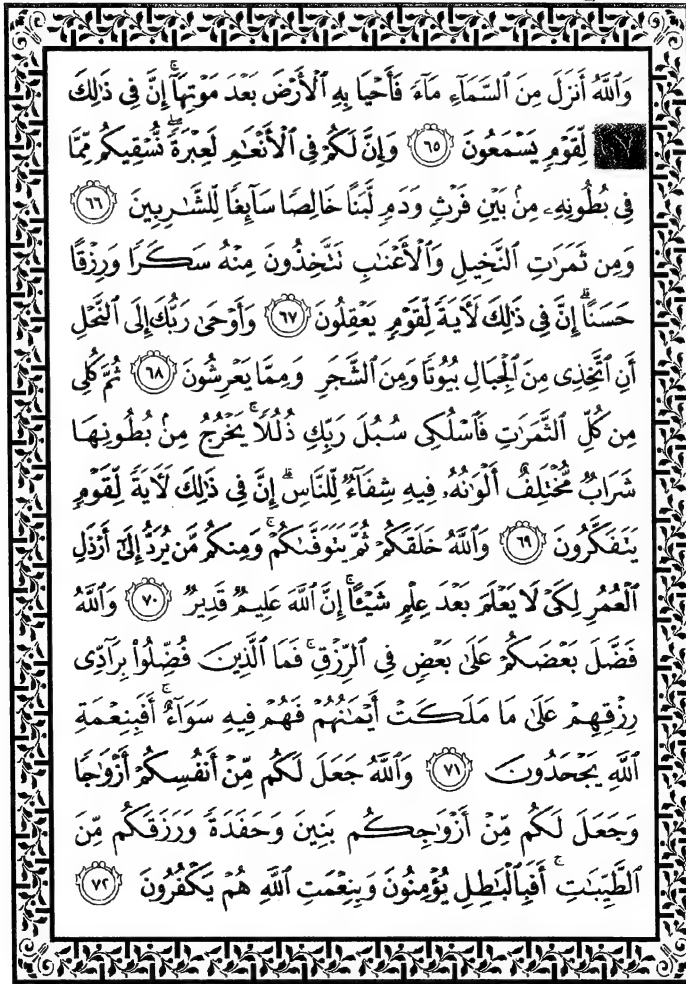 وَٱللَّهُ أَنزَلَ مِنَ ٱلسَّمَآءِ مَآءً فَأَحْيَا بِهِ ٱلْأَرْضَ بَعْدَ مَوْتِهَآ ۚ إِنَّ فِى ذَٰلِكَ
لِّقَوْمٍ يَسْمَعُونَ ﴿٦٥﴾ وَإِنَّ لَكُمْ فِى ٱلْأَنْعَـٰمِ لَعِبْرَةً ۖ نُّسْقِيكُم مِّمَّا
فِى بُطُونِهِۦ مِنۢ بَيْنِ فَرْثٍ وَدَمٍ لَّبَنًا خَالِصًا سَآئِغًا لِّلشَّـٰرِبِينَ ﴿٦٦﴾
وَمِن ثَمَرَٰتِ ٱلنَّخِيلِ وَٱلْأَعْنَـٰبِ تَتَّخِذُونَ مِنْهُ سَكَرًا وَرِزْقًا
حَسَنًا ۗ إِنَّ فِى ذَٰلِكَ لَـَٔايَةً لِّقَوْمٍ يَعْقِلُونَ ﴿٦٧﴾ وَأَوْحَىٰ رَبُّكَ إِلَى ٱلنَّحْلِ
أَنِ ٱتَّخِذِى مِنَ ٱلْجِبَالِ بُيُوتًا وَمِنَ ٱلشَّجَرِ وَمِمَّا يَعْرِشُونَ ﴿٦٨﴾ ثُمَّ كُلِى
مِن كُلِّ ٱلثَّمَرَٰتِ فَٱسْلُكِى سُبُلَ رَبِّكِ ذُلُلًا ۚ يَخْرُجُ مِنۢ بُطُونِهَا
شَرَابٌ مُّخْتَلِفٌ أَلْوَٰنُهُۥ فِيهِ شِفَآءٌ لِّلنَّاسِ ۗ إِنَّ فِى ذَٰلِكَ لَـَٔايَةً لِّقَوْمٍ
يَتَفَكَّرُونَ ﴿٦٩﴾ وَٱللَّهُ خَلَقَكُمْ ثُمَّ يَتَوَفَّىٰكُمْ ۚ وَمِنكُم مَّن يُرَدُّ إِلَىٰٓ أَرْذَلِ
ٱلْعُمُرِ لِكَىْ لَا يَعْلَمَ بَعْدَ عِلْمٍ شَيْـًٔا ۚ إِنَّ ٱللَّهَ عَلِيمٌ قَدِيرٌ ﴿٧٠﴾ وَٱللَّهُ
فَضَّلَ بَعْضَكُمْ عَلَىٰ بَعْضٍ فِى ٱلرِّزْقِ ۚ فَمَا ٱلَّذِينَ فُضِّلُوا۟ بِرَآدِّى
رِزْقِهِمْ عَلَىٰ مَا مَلَكَتْ أَيْمَـٰنُهُمْ فَهُمْ فِيهِ سَوَآءٌ ۚ أَفَبِنِعْمَةِ
ٱللَّهِ يَجْحَدُونَ ﴿٧١﴾ وَٱللَّهُ جَعَلَ لَكُم مِّنْ أَنفُسِكُمْ أَزْوَٰجًا
وَجَعَلَ لَكُم مِّنْ أَزْوَٰجِكُم بَنِينَ وَحَفَدَةً وَرَزَقَكُم مِّنَ
ٱلطَّيِّبَـٰتِ ۚ أَفَبِٱلْبَـٰطِلِ يُؤْمِنُونَ وَبِنِعْمَتِ ٱللَّهِ هُمْ يَكْفُرُونَ ﴿٧٢﴾